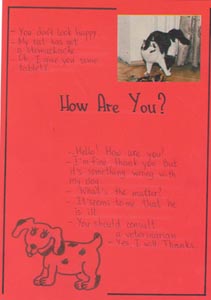 - You don't look happy.
- My cat has got
a stomackache.
- Do I give you some
tablet?
How Are You?
- Hello! How are you?
- I'm fine thank you but
it's something wrong with
my dog.
- What's the matter?
- It seems to me that he
is ill
- You should consult
a veterinarian
- Yes I will Thanks.